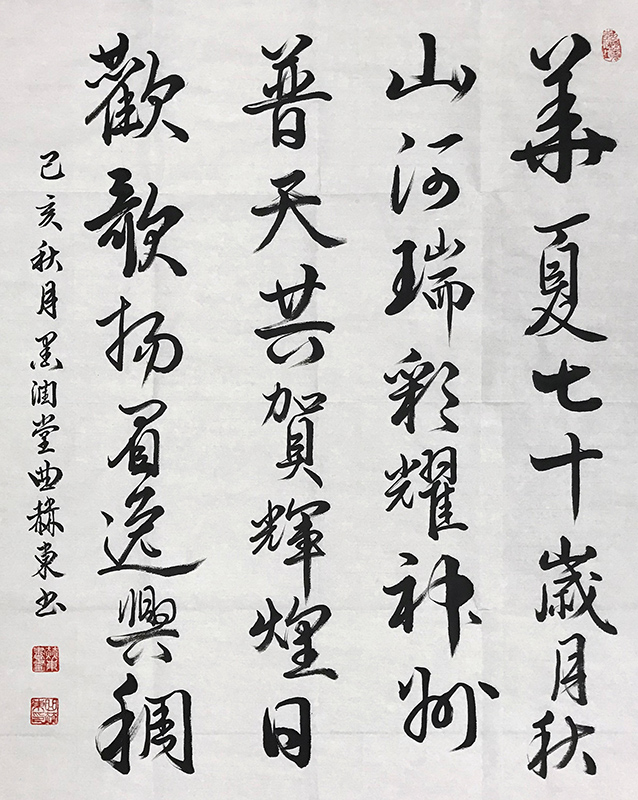 華夏七十歲月秋
山河瑞彩耀神州
普天共賀輝煌日
歡歌扬眉逸興稠
己亥秋月墨润堂曲赫東书